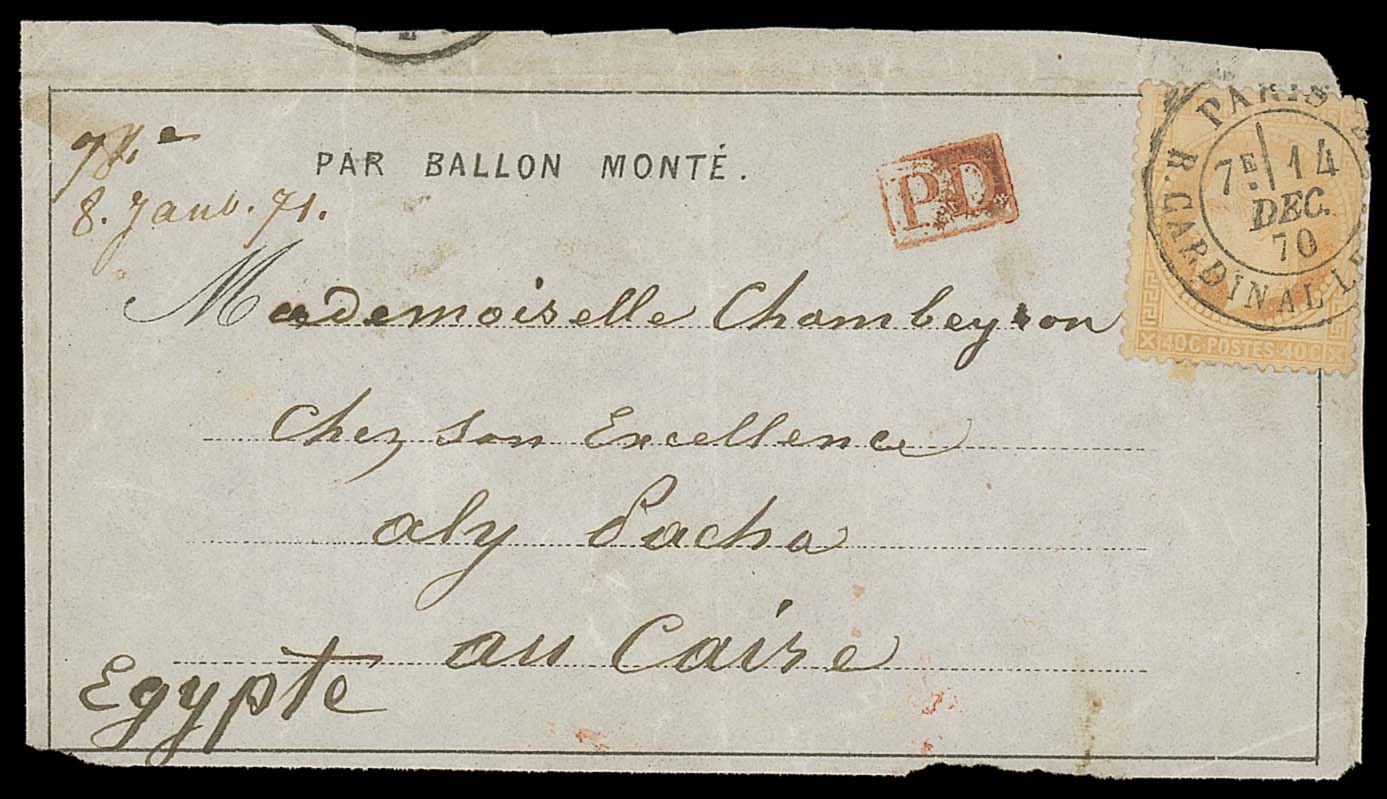 PAR BALLON MONTÉ.
8. Janv. 71.
P.D
PARIS
7E 14
DEC.
70
R. CARDINAL L
40C POSTES 40C
Mademoiselle Chambeyron
Chez Son Excellence
aly Pacha
au Caire
Egypte